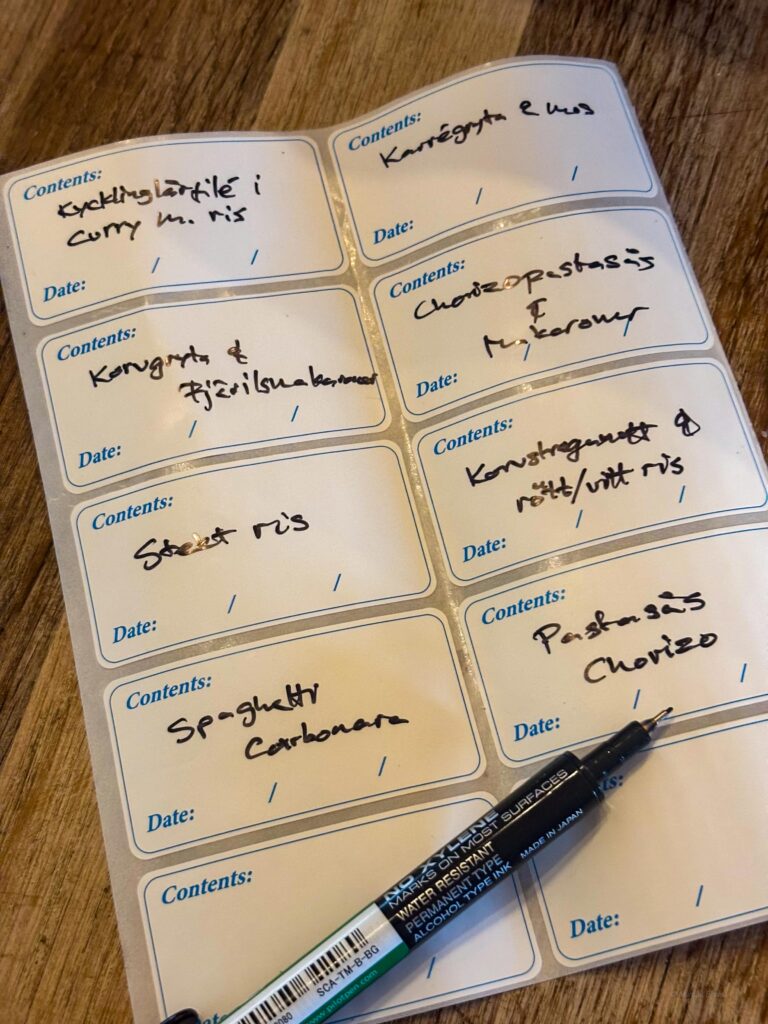 Contents:
Kycklinglårfilé i
curry m. ris
Date: / /
Contents:
Karrégryta & mos
Date: / /
Contents:
Korvgryta &
Fjärilsmakaroner
Date: / /
Contents:
Chorizopastasås
&
Makaroner
Date: / /
Contents:
Stekt ris
Date: / /
Contents:
Korvstroganoff &
rött/vitt ris
Date: / /
Contents:
Spaghetti
Carbonara
Date: / /
Contents:
Pastasås
Chorizo
Date: / /
Contents:
/
Date: /
NO XYLENE
MARKS ON MOST SURFACES
WATER RESISTANT
PERMANENT TYPE
ALCOHOL TYPE INK
MADE IN JAPAN
SCA-TM-B-BG
www.pilotpen.com